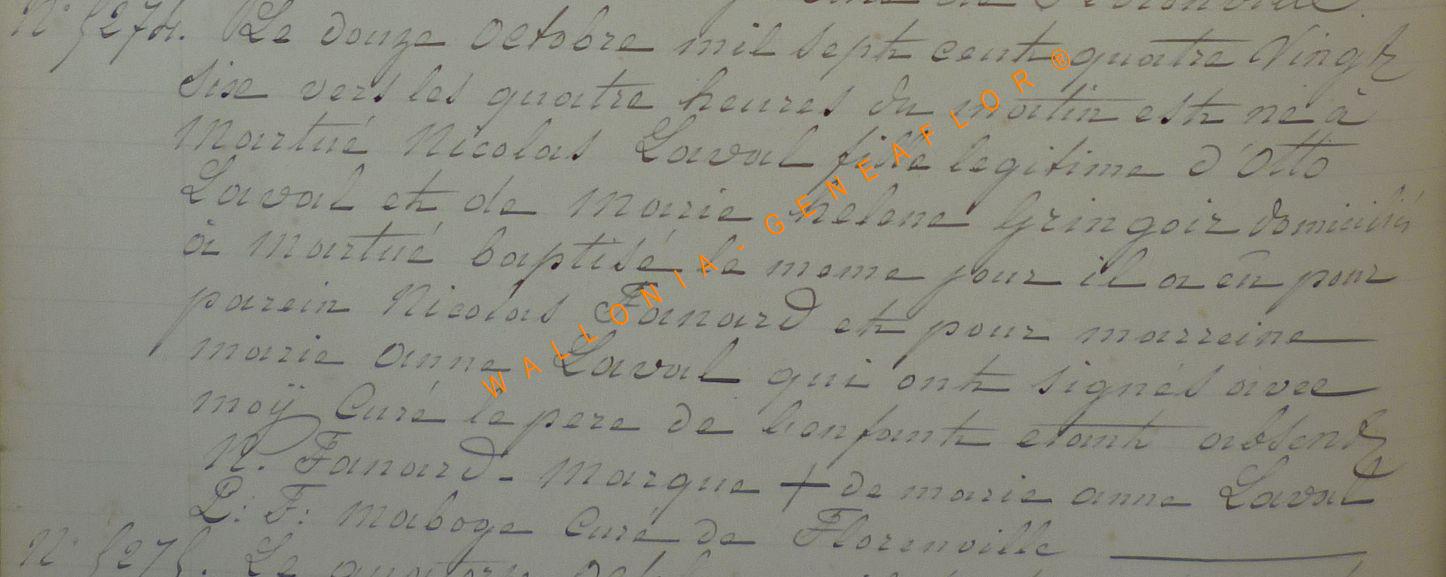 de Florenville.
N° 5274. Le douze octobre mil sept cent quatre Vingt
Six vers les quatre heures du matin est né à
Martué Nicolas Laval fille legitime d'Otto
Laval et de Marie helene Gringoir domiciliés
à Martué baptisé le meme jour il a eû pour
parein Nicolas Fanard et pour marreine
marie anne Laval qui ont signés avec
moÿ Curé le pere de l'enfant etant absent
N. Fanard - Marque + de marie anne Laval
P: F: Maboge Curé de Florenville
N° 5275. Le quatorze
WALLONIA - GENEAFLOR ®